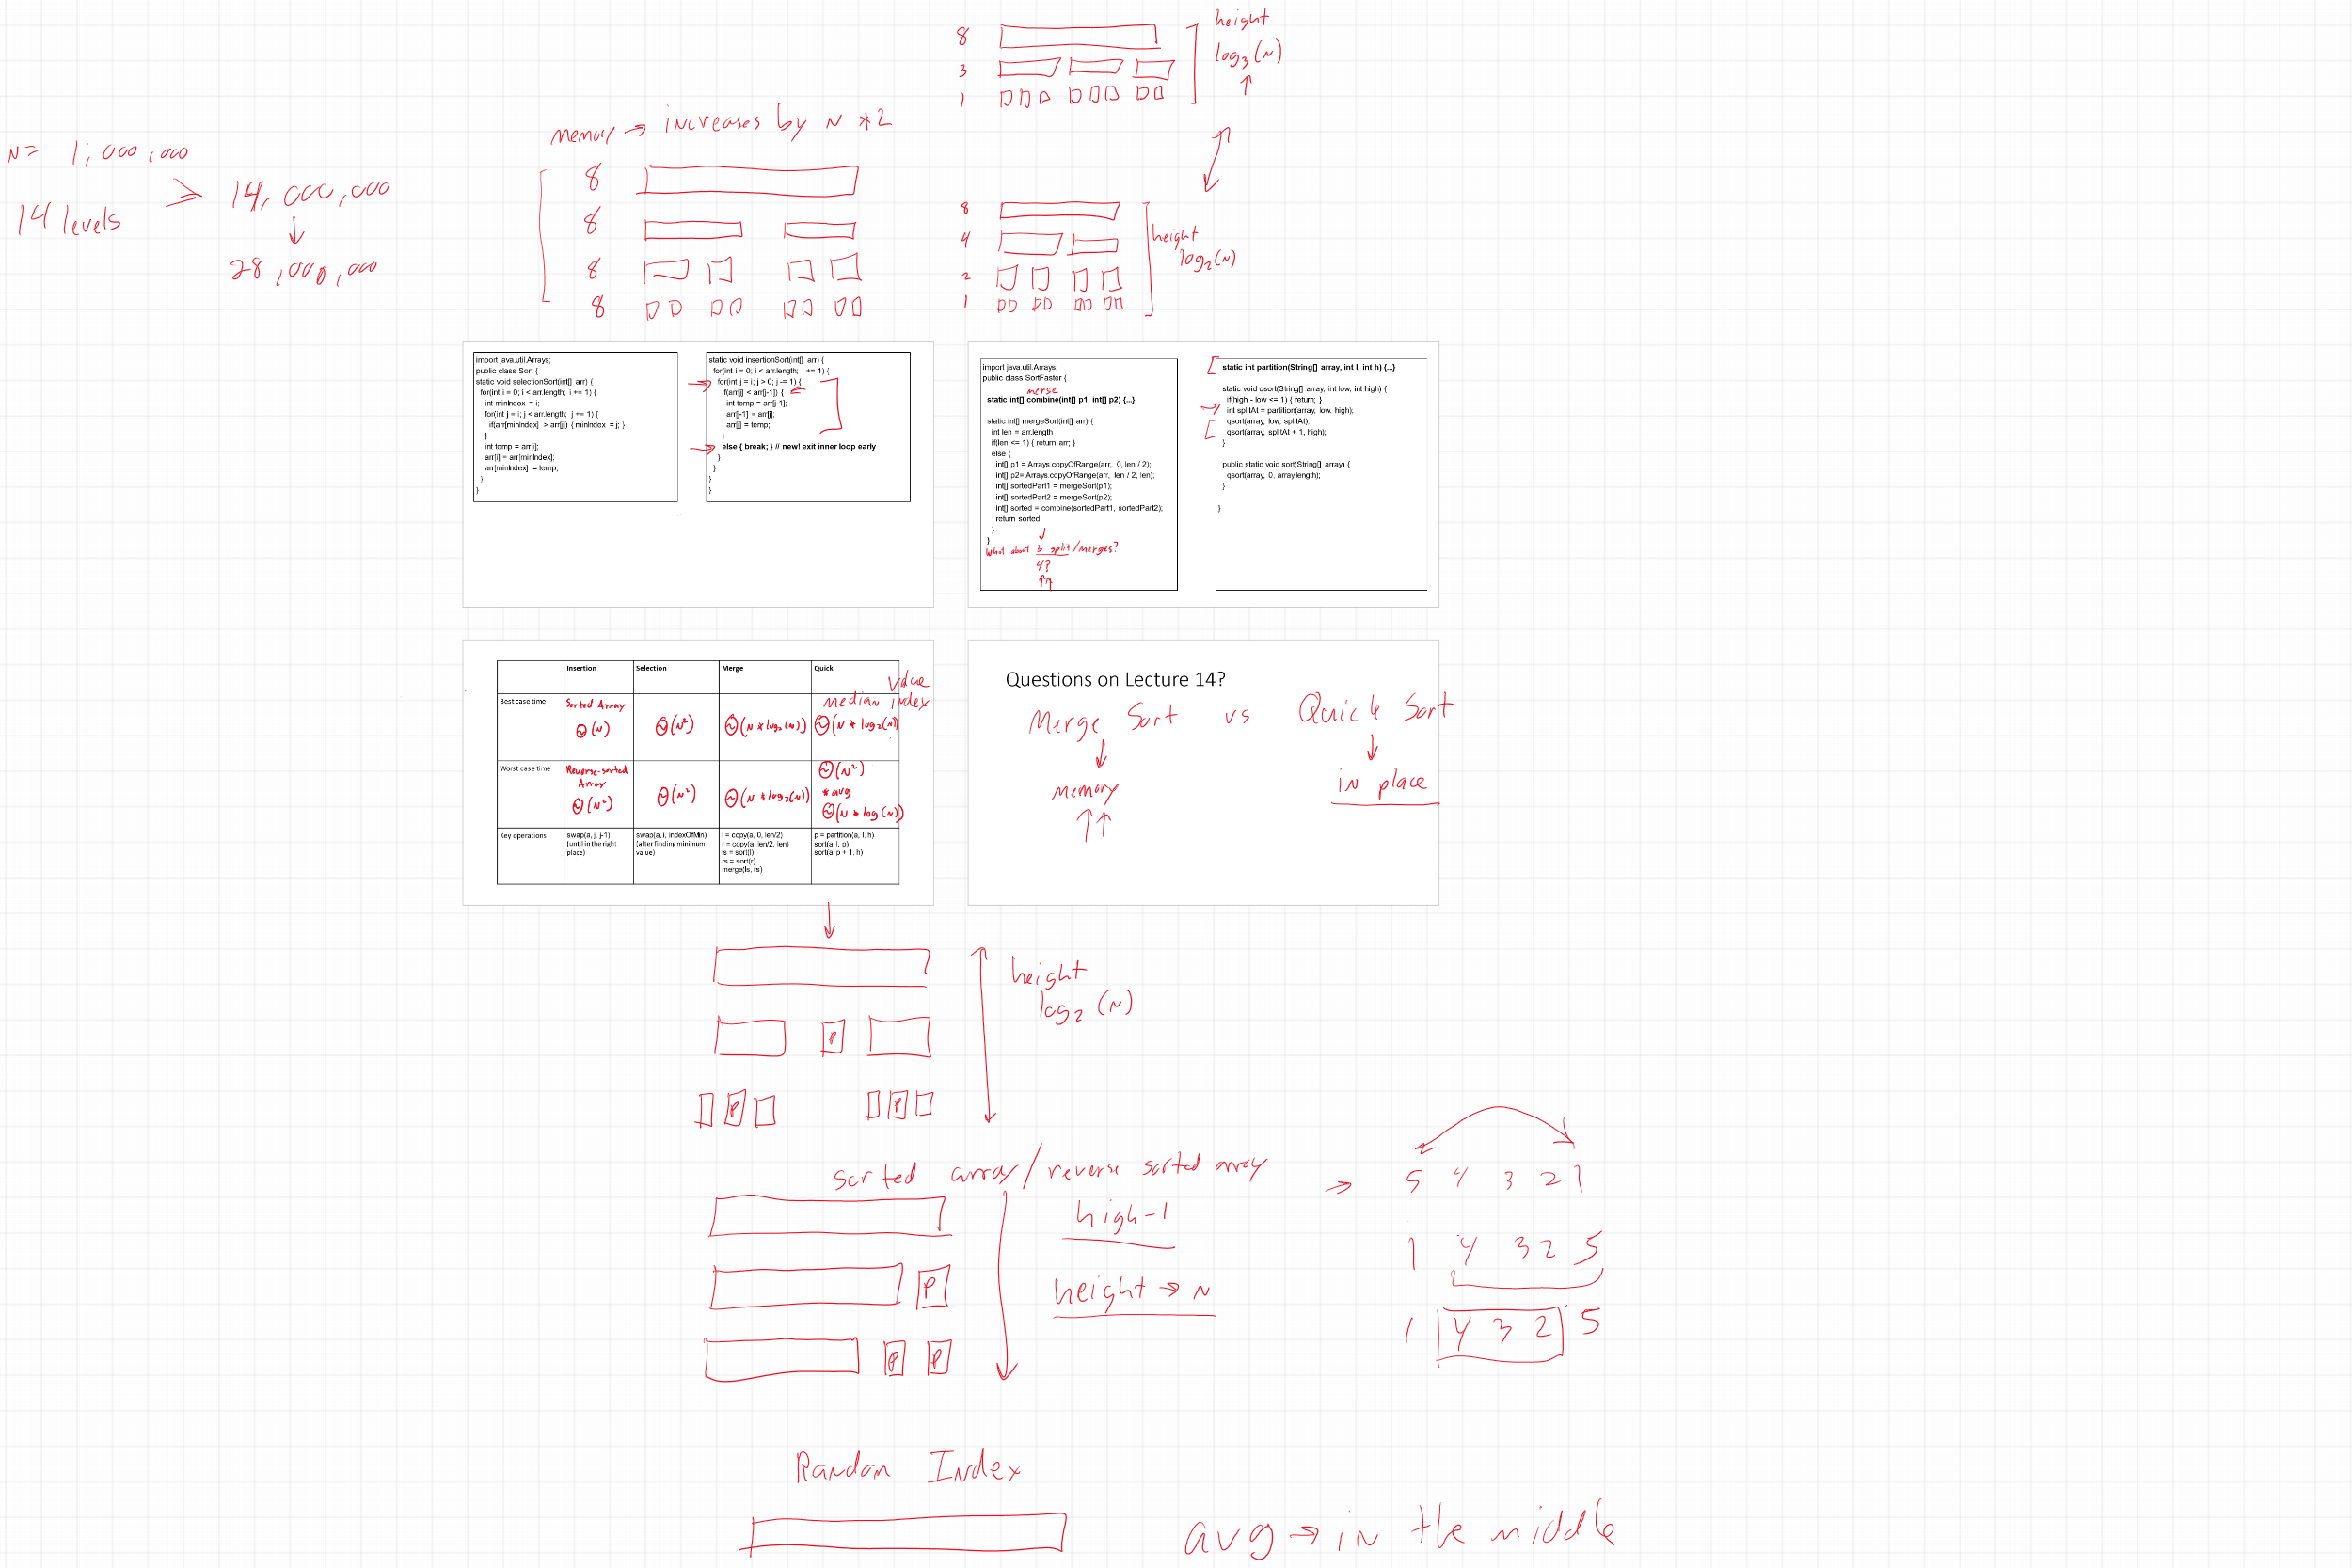 8
3
1
height
log₃(N)
memory → increases by N *2
8
8
8
8
N= 1,000,000
14 levels
14,000,000
28,000,000
8
4
2
1
height
log₂(N)
import java.util.Arrays;
public class Sort {
static void selectionSort(int[] arr) {
for(int i = 0; i < arr.length; i += 1) {
int minIndex = i;
for(int j = i; j < arr.length; j += 1) {
if(arr[minIndex] > arr[j]) { minIndex = j; }
}
int temp = arr[i];
arr[i] = arr[minIndex];
arr[minIndex] = temp;
}
}
static void insertionSort(int[] arr) {
for(int i = 0; i < arr.length; i += 1) {
for(int j = i; j > 0; j -= 1) {
if(arr[j] < arr[j-1]) {
int temp = arr[j-1];
arr[j-1] = arr[j];
arr[j] = temp;
}
else { break; } // new! exit inner loop early
}
}
}
}
import java.util.Arrays;
public class SortFaster {
merse
static int[] combine(int[] p1, int[] p2) {...}
static int[] mergeSort(int[] arr) {
int len = arr.length
if(len <= 1) { return arr; }
else {
int[] p1 = Arrays.copyOfRange(arr, 0, len / 2);
int[] p2= Arrays.copyOfRange(arr, len / 2, len);
int[] sortedPart1 = mergeSort(p1);
int[] sortedPart2 = mergeSort(p2);
int[] sorted = combine(sortedPart1, sortedPart2);
return sorted;
}
}
What about 3 split/merges?
4?
static int partition(String[] array, int l, int h) {...}
static void qsort(String[] array, int low, int high) {
if(high - low <= 1) { return; }
int splitAt = partition(array, low, high);
qsort(array, low, splitAt);
qsort(array, splitAt + 1, high);
}
public static void sort(String[] array) {
qsort(array, 0, array.length);
}
}
Insertion Selection Merge Quick
value
median index
Best case time
Sorted Array
Θ(N)
Θ(N²)
Θ(N * log₂(N))
Θ(N * log₂(N))
Worst case time
Reverse-sorted
Array
Θ(N²)
Θ(N²)
Θ(N * log₂(N))
Θ(N²)
* avg
Θ(N * log(N))
Key operations
swap(a, j, j-1)
(until in the right
place)
swap(a, i, indexOfMin)
(after finding minimum
value)
l = copy(a, 0, len/2)
r = copy(a, len/2, len)
ls = sort(l)
rs = sort(r)
merge(ls, rs)
p = partition(a, l, h)
sort(a, l, p)
sort(a, p + 1, h)
Questions on Lecture 14?
Merge Sort vs Quick Sort
memory
in place
height
log₂(N)
P
P
P
sorted array/reverse sorted array
high-1
height → N
P
P P
→ 5 4 3 2 1
1 4 3 2 5
1 4 3 2 5
Random Index
avg → in the middle